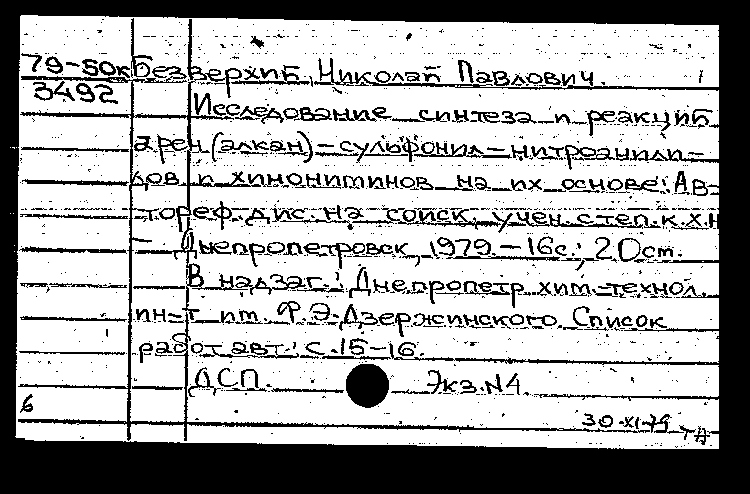 79-50к Безверхий, Николай Павлович.
3492
Исследование синтеза и реакций
арен(алкан)-сульфонил-нитроанили-
дов и хинониминов на их основе: Ав-
тореф. дис. на соиск. учен. степ. к.х.н
Днепропетровск, 1979. - 16с.; 20см.
В надзаг.: Днепропетр. хим.-технол.
ин-т им. Ф.Э.Дзержинского. Список
работ авт.: с.15-16.
ДСП. Экз.N4
6
30-XI-79 ТА